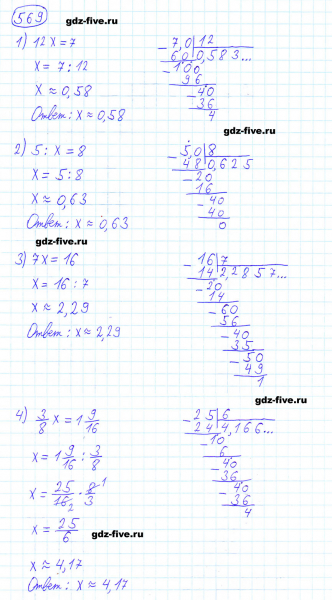 569
gdz-five.ru
1) 12x = 7
x = 7 : 12
x ≈ 0,58
Ответ: x ≈ 0,58
7,0 | 12
60 | 0,583...
100
96
40
36
4
gdz-five.ru
2) 5 : x = 8
x = 5 : 8
x ≈ 0,63
Ответ: x ≈ 0,63
5,0 | 8
48 | 0,625
20
16
40
40
0
gdz-five.ru
gdz-five.ru
3) 7x = 16
x = 16 : 7
x ≈ 2,29
Ответ: x ≈ 2,29
16 | 7
14 | 2,2857...
20
14
60
56
40
35
50
49
1
gdz-five.ru
4) 3/8 x = 1 9/16
x = 1 9/16 : 3/8
x = 25/16 2 · 8/3 1
x = 25/6
gdz-five.ru
x ≈ 4,17
Ответ: x ≈ 4,17
25 | 6
24 | 4,166...
10
6
40
36
40
36
4